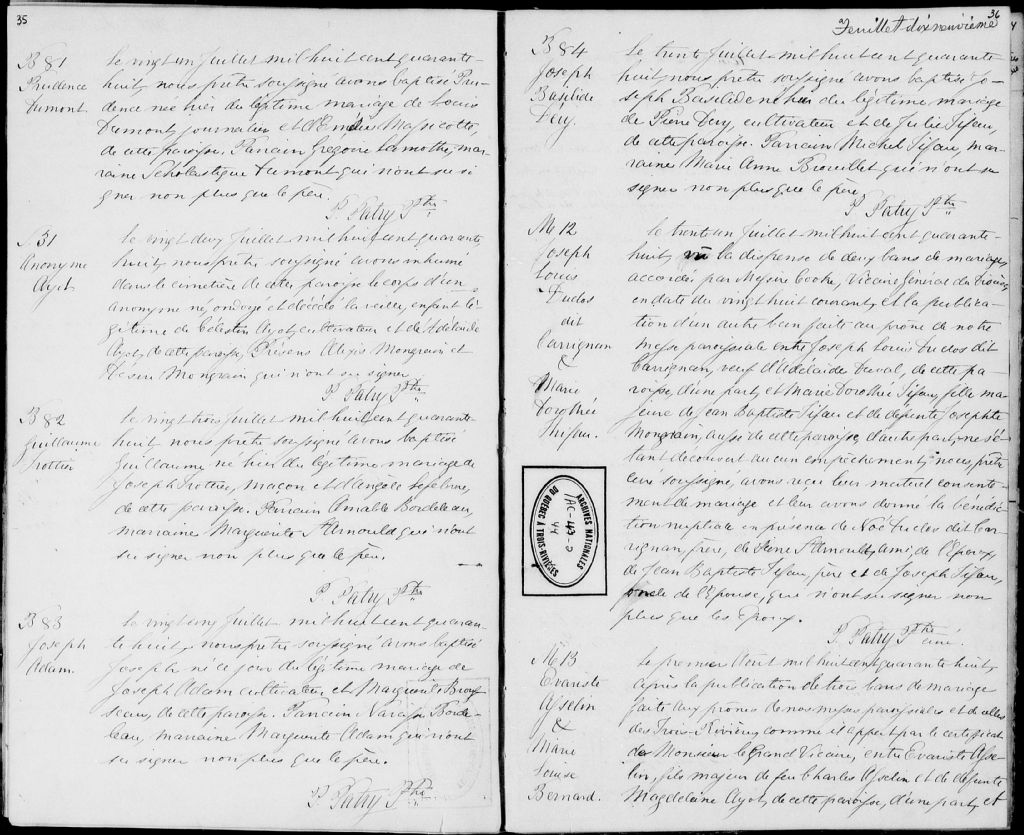 35
B 81
Prudence
Dumont
Le vingt un Juillet mil huit cent quarante-
huit, nous prêtre soussigné avons baptisé Pru-
dence née hier du légitime mariage de Louis
Dumont, journalier et d'Emélie Massicotte,
de cette paroisse. Parrain Grégoire Lamothe, mar-
raine Scholastique Dumont qui n'ont su si
gner non plus que le père.
P. Patry Ptre
S. 31
Anonyme
Ayot
Le vingt deux Juillet mil huit cent quarante
huit, nous prêtre soussigné avons inhumé
dans le cimetière de cette paroisse le corps d'un
anonyme né, ondoyé et décédé la veille, enfant lé-
gitime de Célestin Ayot, cultivateur et de Adélaide
Ayot, de cette paroisse. Présens Alexis Mongrain et
Désiré Mongrain qui n'ont su signer
P. Patry Ptre
B 82
Guillaume
Trottier
Le vingt trois Juillet mil huit cent quarante
huit nous prêtre soussigné avons baptisé
Guillaume, né hier du légitime mariage de
Joseph Trottier, maçon et d'Angèle Lefebvre,
de cette paroisse. Parrain Amable Bordeleau,
marraine Marguerite St Arnould qui n'ont
su signer non plus que le père.
P. Patry Ptre
B 83
Joseph
Adam.
Le vingt cinq Juillet mil huit cent quaran-
te huit, nous prêtre soussigné avons baptisé
Joseph né ce jour du légitime mariage de
Joseph Adam cultivateur et Marguerite Brous-
seau, de cette paroisse. Parrain Narcisse Borde-
leau, marraine Marguerite Adam qui n'ont
su signer non plus que le père.
P. Patry Ptre
36
Feuillet dix neuvième
B 84
Joseph
Basilide
Déry.
Le trente Juillet mil huit cent quarante
huit, nous prêtre soussigné avons baptisé Jo-
seph Basilide né hier du légitime mariage
de Pierre Dery, cultivateur et de Julie Tifau,
de cette paroisse. Parrain Michel Tifau, mar-
raine Marie Anne Brouillet qui n'ont su
signer non plus que le père
P. Patry Ptre
M 12
Joseph
Louis
Duclos
dit
Carrignan
&
Marie
Dorothée
Thifau.
Le trente un Juillet mil huit cent quarante-
huit, vu la dispense de deux bans de mariage,
accordée par Messire Cooke, Vicaire Général du Diocèse
en date du vingt huit courant, et la publica-
tion d'un autre ban faite au prône de notre
messe paroissiale entre Joseph Louis Duclos dit
Carrignan, veuf d'Adelaide Duval, de cette pa-
roisse, d'une part, et Marie Dorothée Tifau, fille ma-
jeure de Jean Baptiste Tifau et de defunte Josephte
Mongrain, aussi de cette paroisse, d'autre part; ne s'é-
tant découvert aucun empêchement, nous, prêtre
curé soussigné, avons reçu leur mutuel consente-
ment de mariage et leur avons donné la bénédic-
tion nuptiale en présence de Noé Duclos dit Car-
rignan, frère, de Pierre St Arnould, ami, de l'Epoux,
de Jean Baptiste Tifau, père et de Joseph Tifau,
oncle de l'Epouse, qui n'ont su signer non
plus que les Epoux.
P. Patry Ptre curé.
ARCHIVES NATIONALES
DU QUÉBEC À TROIS-RIVIÈRES
M 13
Evariste
Asselin
&
Marie
Louise
Bernard.
Le premier Aout mil huit cent quarante huit,
après la publication de trois bans de mariage
faite aux prones de nos messes paroissiales et de celles
des Trois-Rivières, comme il appert par le certificat
de Monsieur le Grand Vicaire, entre Evariste Asse-
lin, fils majeur de feu Charles Asselin et de defunte
Magdelaine Ayot, de cette paroisse, d'une part, et